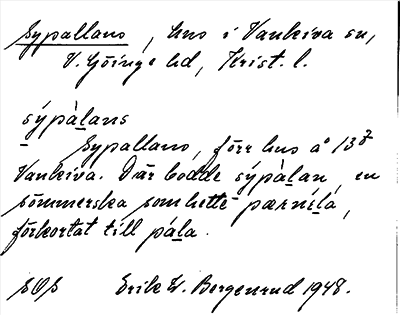 Sypallano, hus i Vankiva sn,
V. Göinge hd, Krist. l.
sýpàlans
Sypallano, förr hus å 13
Vankiva. Där bodde sýpàlan, en
sömmerska som hette pærníla,
förkortat till pála.
SOS Erik W. Bergenrud 1948.